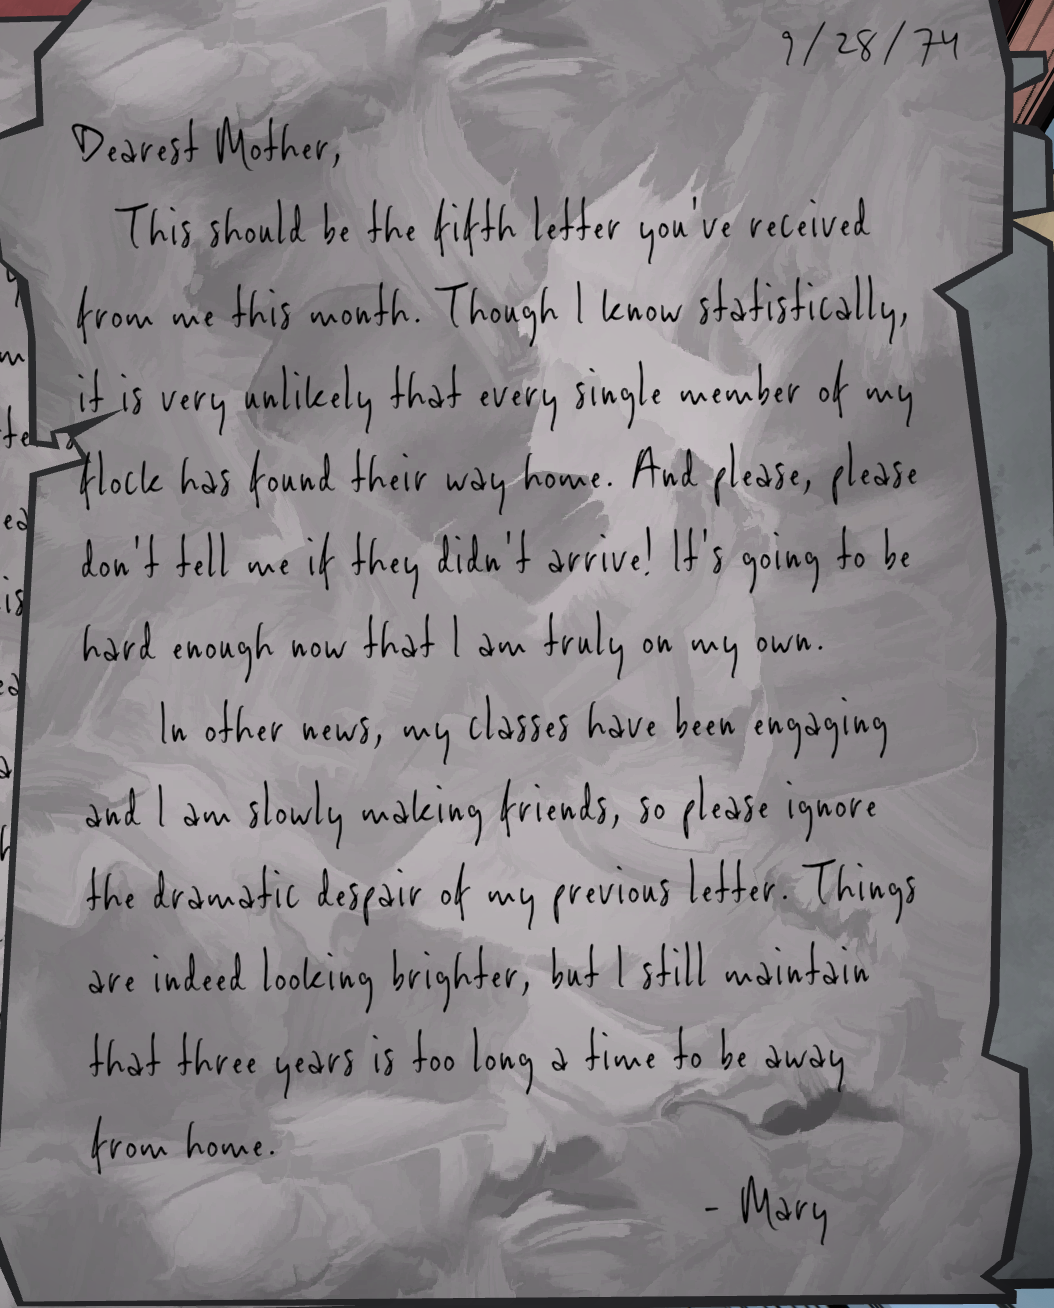 9/28/74
Dearest Mother,
This should be the fifth letter you've received
from me this month. Though I know statistically,
it is very unlikely that every single member of my
flock has found their way home. And please, please
don't tell me if they didn't arrive! It's going to be
hard enough now that I am truly on my own.
In other news, my classes have been engaging
and I am slowly making friends, so please ignore
the dramatic despair of my previous letter. Things
are indeed looking brighter, but I still maintain
that three years is too long a time to be away
from home.
- Mary